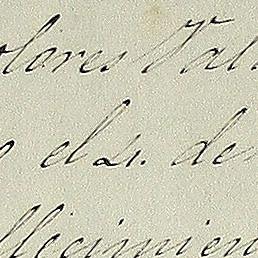 olores Val
o el S. de
llecimien